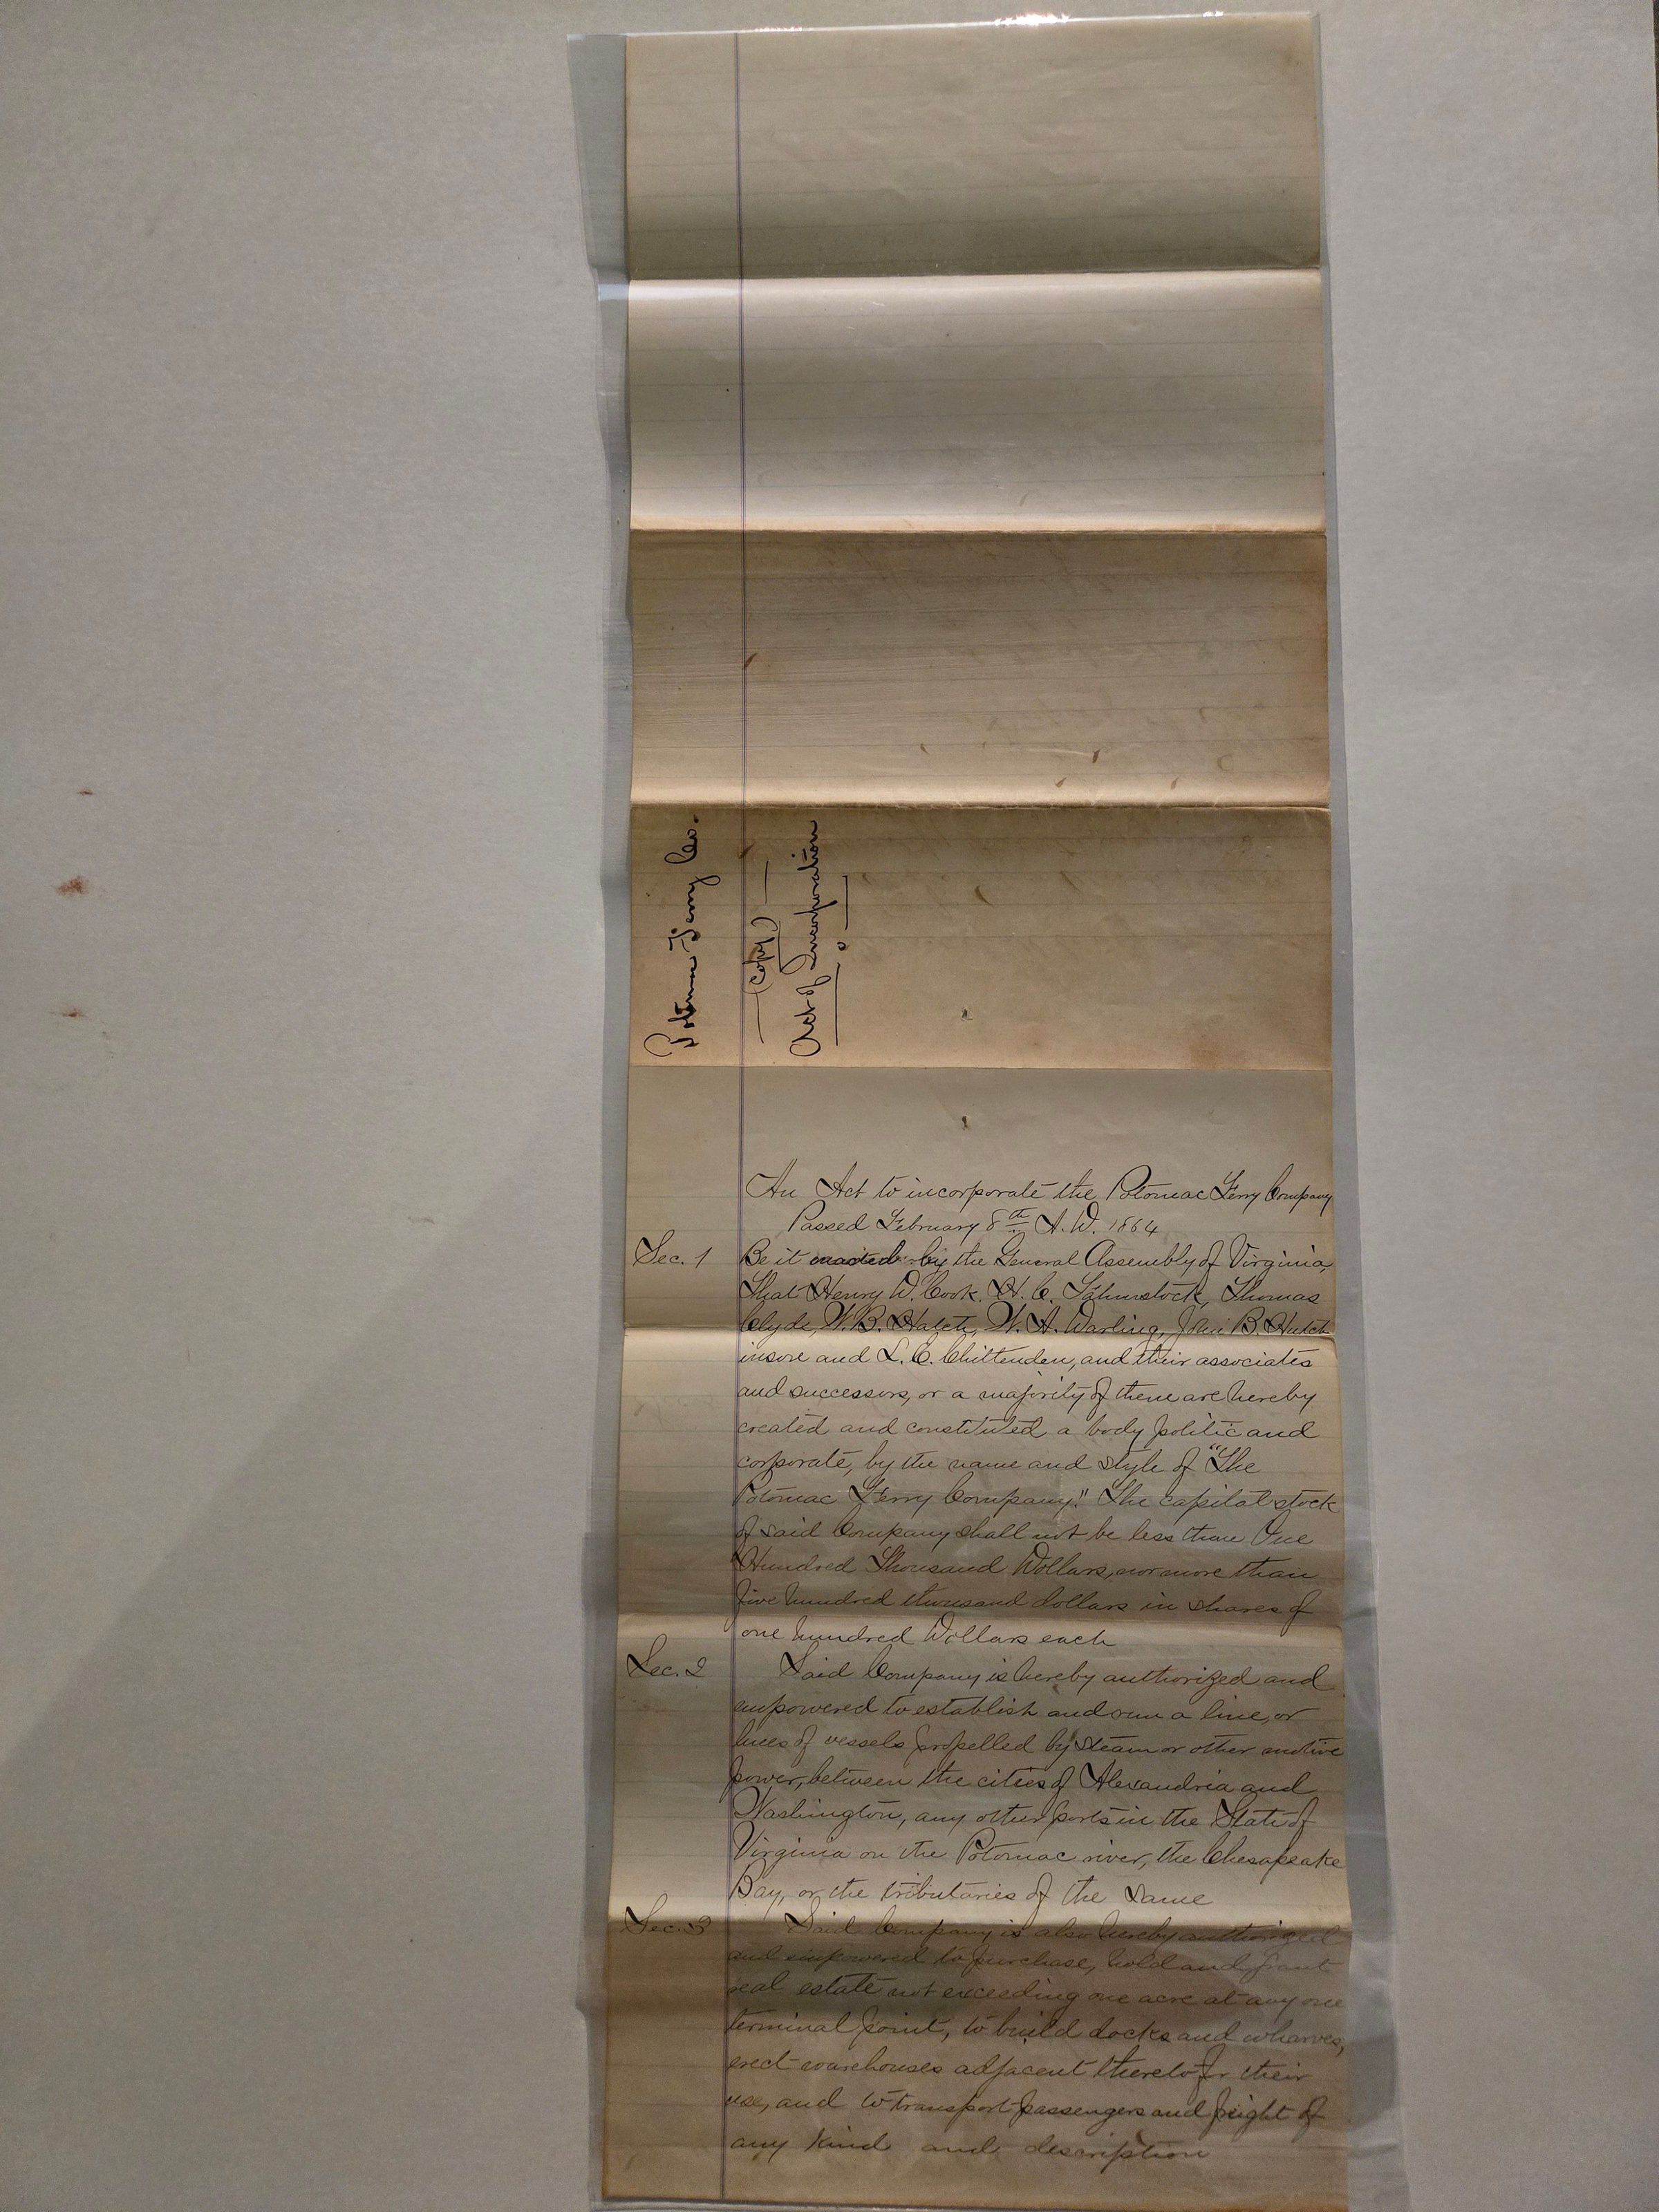 Potomac Ferry Co.
(Copy)
Act of Incorporation
An Act to incorporate the Potomac Ferry Company
Passed February 8th A.D. 1864
Sec. 1 Be it enacted by the General Assembly of Virginia,
That Henry D. Cook, H. C. Fahnstock, Thomas
Clyde, W. B. Hatch, W. A. Darling, John B. Hutch
inson and L. E. Chittenden, and their associates
and successors, or a majority of them are hereby
created and constituted a body politic and
corporate, by the name and style of "The
Potomac Ferry Company." The capital stock
of said Company shall not be less than One
Hundred Thousand Dollars, nor more than
five hundred thousand dollars in shares of
one hundred Dollars each
Sec. 2 Said Company is hereby authorized and
empowered to establish and run a line, or
lines of vessels propelled by steam or other motive
power, between the cities of Alexandria and
Washington, any other ports in the State of
Virginia on the Potomac river, the Chesapeake
Bay, or the tributaries of the same
Sec. 3 Said Company is also hereby authorized
and empowered to purchase, hold and grant
real estate not exceeding one acre at any one
terminal point, to build docks and wharves,
erect warehouses adjacent thereto for their
use, and to transport passengers and freight of
any kind and description